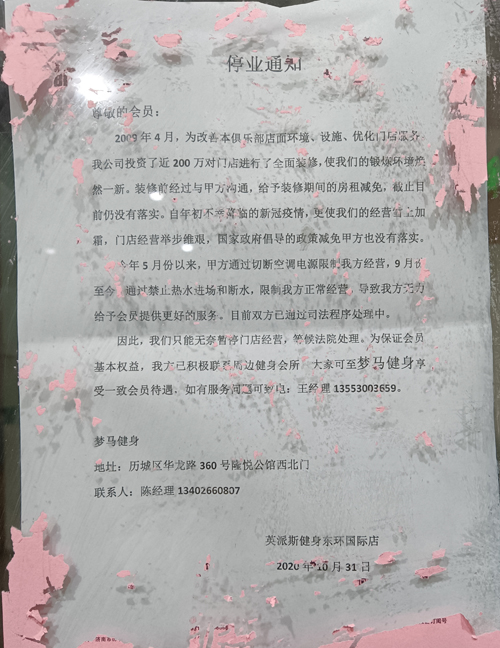 停业通知
尊敬的会员：
2009年4月，为改善本俱乐部店面环境、设施、优化门店服务
我公司投资了近200万对门店进行了全面装修，使我们的锻炼环境焕
然一新。装修前经过与甲方沟通，给予装修期间的房租减免，截止目
前仍没有落实。自年初不幸莅临的新冠疫情，更使我们的经营雪上加
霜，门店经营举步维艰，国家政府倡导的政策减免甲方也没有落实。
今年5月份以来，甲方通过切断空调电源限制我方经营，9月份
至今，通过禁止热水进场和断水，限制我方正常经营，导致我方无力
给予会员提供更好的服务。目前双方已通过司法程序处理中。
因此，我们只能无奈暂停门店经营，等候法院处理。为保证会员
基本权益，我方已积极联系周边健身会所，大家可至梦马健身享
受一致会员待遇。如有服务问题可致电：王经理13553003659。
梦马健身
地址：历城区华龙路360号隆悦公馆西北门
联系人：陈经理13402660807
英派斯健身东环国际店
2020年10月31日